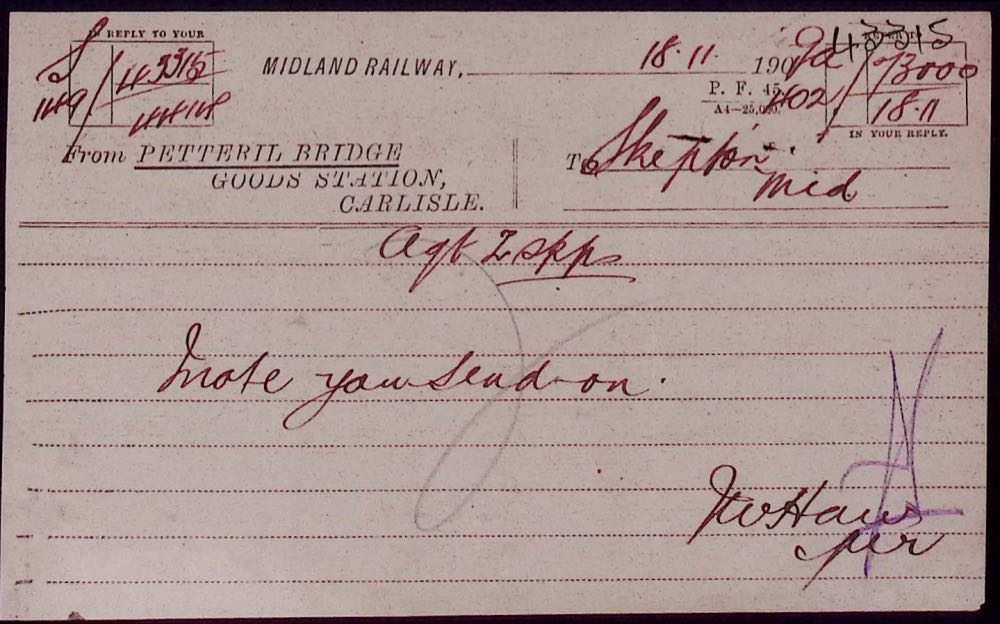 IN REPLY TO YOUR
S 43315
1149 / 44418
MIDLAND RAILWAY, 18.11 190
P. F. 45.
A4—25,000.
43315
3000
402 / 18.11
IN YOUR REPLY.
From PETTERIL BRIDGE
GOODS STATION,
CARLISLE.
To Skepton
Mid
Agt 2 skps
I note you send on.
per